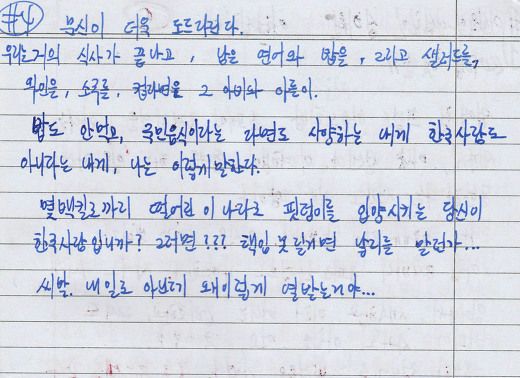 #4
문신이 더욱 도드라진다.
우리는거의 식사가 끝나고, 남은 연어와 밥을, 그리고 샐러드를,
와인을, 소주를, 컵라면을 그 아비와 아들이.
밥도 안먹고, 국민음식이라는 라면도 사양하는 내게 한국사람도
아니라는 내게, 나는 이렇게말한다.
몇백킬로까리 떨어린 이 나라로 핏덩이를 입양시키는 당신이
한국사람입니까? 그러면??? 책임못질거면 낳지를 말던가...
씨발. 내일도 아닌데 왜이렇게 열받는거야...